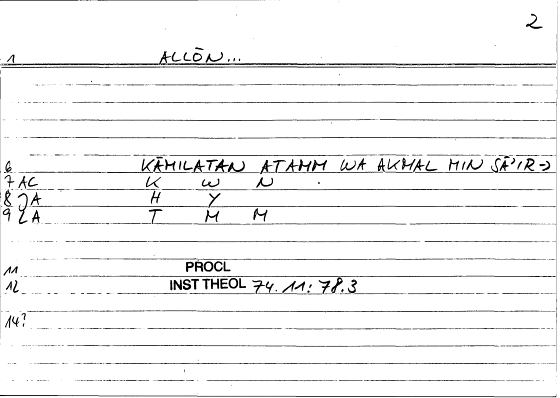 2
1 ALLŌN...
6 KĀMILATAN ATAMM WA AKMAL MIN SĀ'IR→
7 AC K W N .
8 JA H Y
9 2A T M M
11 PROCL
12 INST THEOL 74.11: 78.3
14?